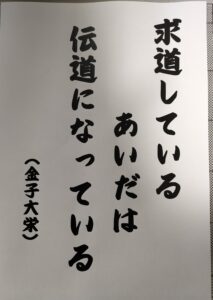 求道している
あいだは
伝道になっている
（金子大栄）